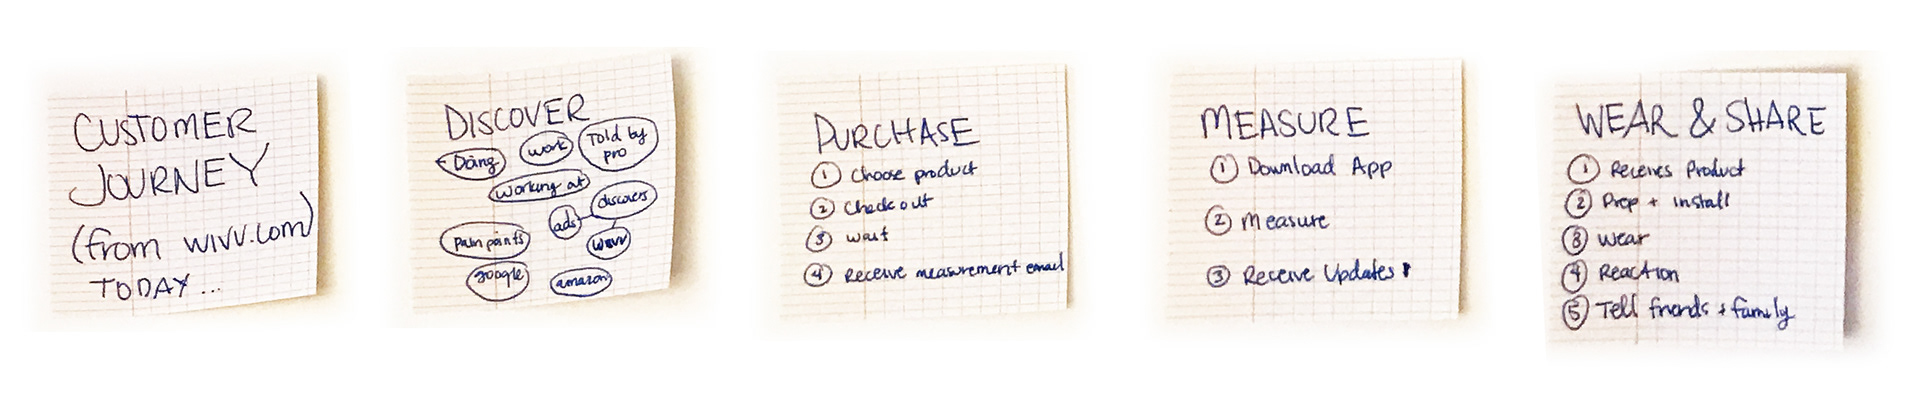 CUSTOMER
JOURNEY
(from wivv.com)
TODAY...
DISCOVER
Doing
work
Told by
pro
working at
discovers
ads
pain points
wivv
google
amazon
PURCHASE
1 Choose product
2 Check out
3 wait
4 Receive measurement email
MEASURE
1 Download App
2 Measure
3 Receive Updates
WEAR & SHARE
1 Receives Product
2 Prep + install
3 Wear
4 Reaction
5 Tell friends + family